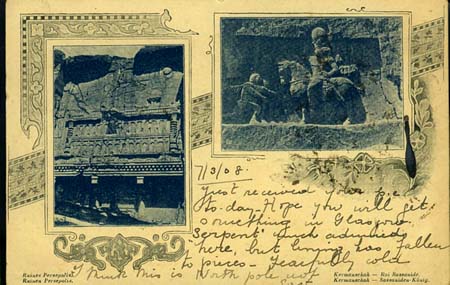 7/3/08.
Just received your p.c.
to-day. Hope you will get
something in Glasgow.
Serpent much admired
here, but having has fallen
to pieces — fearfully cold
I think this is North pole not
Ruines Persepolise.
Ruinen Persepolis.
Kermanschah — Roi Sassanide.
Kermanschah — Sassaniden-König.